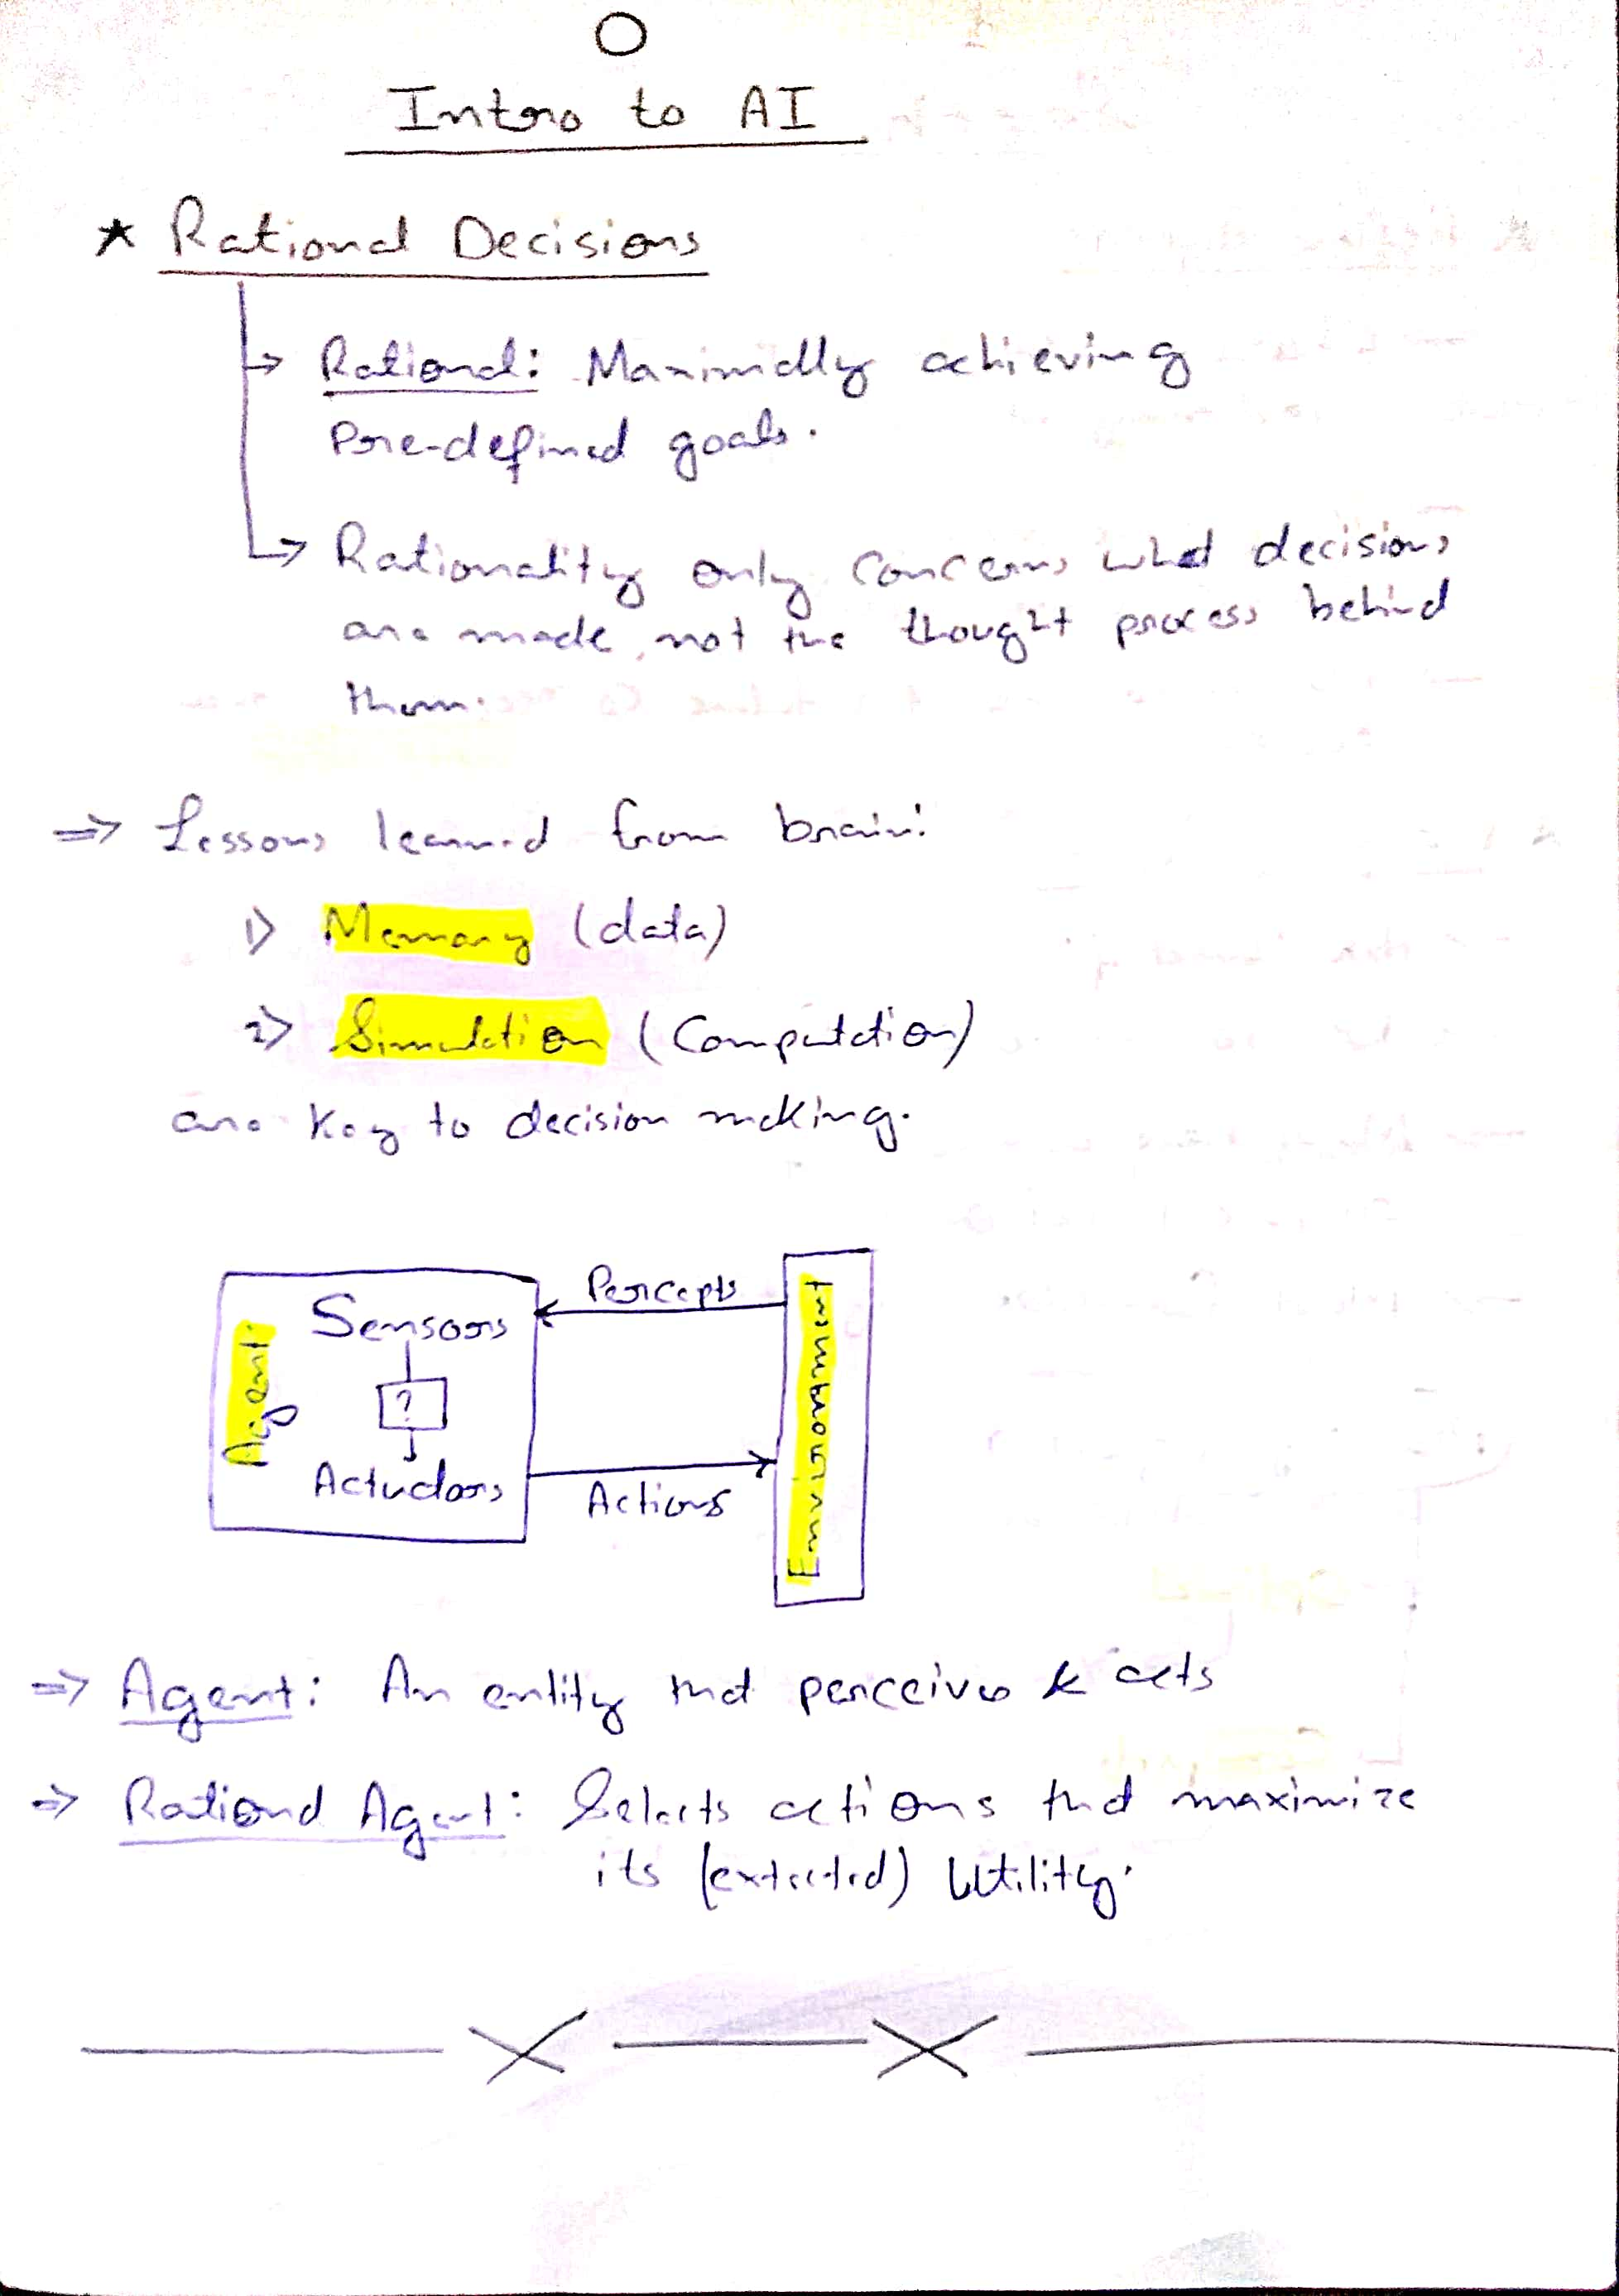 O
Intro to AI
★ Rational Decisions
→ Rational: Maximally achieving
Pre-defined goals.
→ Rationality only concerns what decisions
are made, not the thought process behind
them.
⇒ Lessons learned from brain:
1) Memory (data)
2) Simulation (Computation)
are key to decision making.
Percepts
Sensors
Agent
?
Environment
Actuators
Actions
⇒ Agent: An entity that perceives & acts
⇒ Rational Agent: Selects actions that maximize
its (expected) Utility.